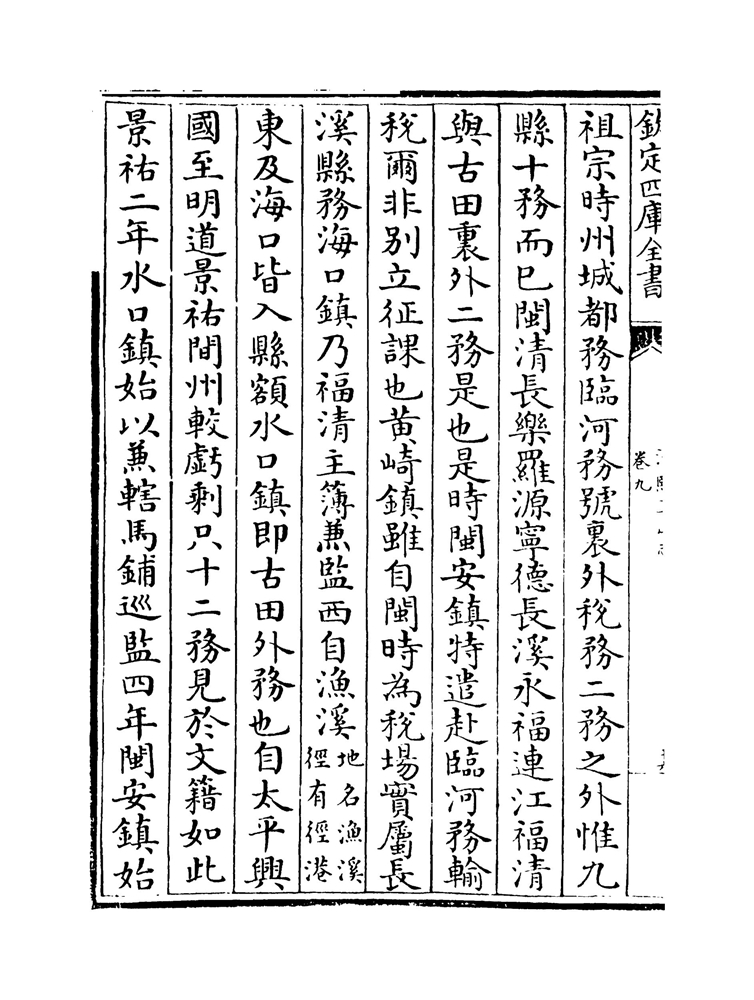 欽定四庫全書
卷九
祖宗時州城都務臨河務號裏外稅務二務之外惟九
縣十務而已閩清長樂羅源寧德長溪永福連江福清
與古田裏外二務是也是時閩安鎮特遣赴臨河務輸
稅爾非别立征課也黄崎鎮雖自閩時為稅場實屬長
溪縣務海口鎮乃福清主簿兼監西自漁溪地名漁溪徑有徑港
東及海口皆入縣額水口鎮即古田外務也自太平興
國至明道景祐間州較虧剰只十二務見於文籍如此
景祐二年水口鎮始以兼轄馬鋪巡監四年閩安鎮始